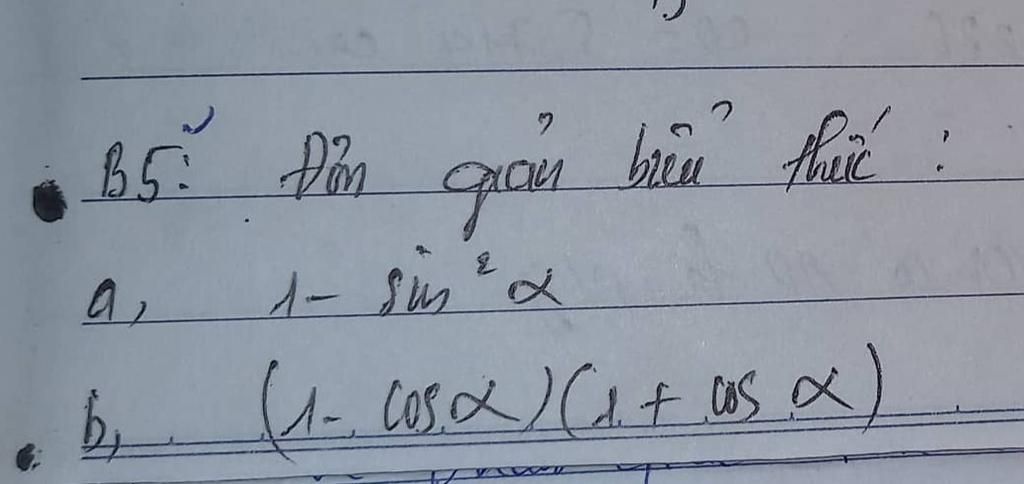 B5: Đơn giản biểu thức :
a, 1 - sin² α
b, (1 - cos α)(1 + cos α)